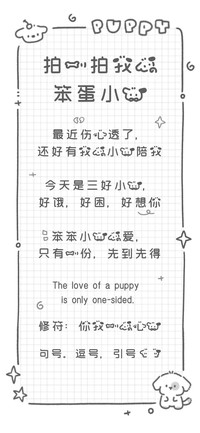 PUPPY
拍拍我
笨蛋小
最近伤心透了，
还好有我小陪我
今天是三好小，
好饿，好困，好想你
笨笨小爱，
只有份，先到先得
The love of a puppy
is only one-sided.
修符：你我心
句号，逗号，引号